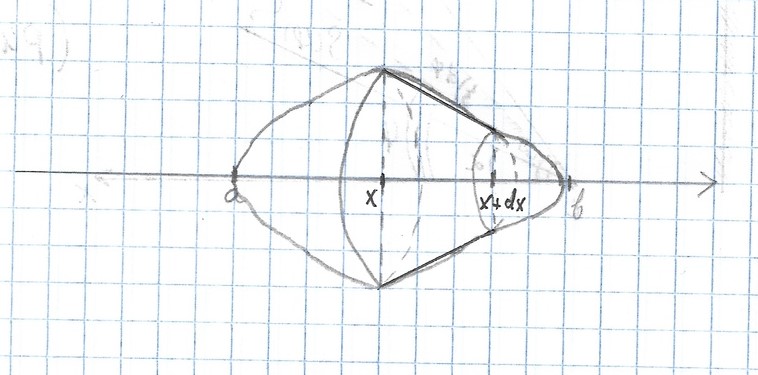 a x x+dx b